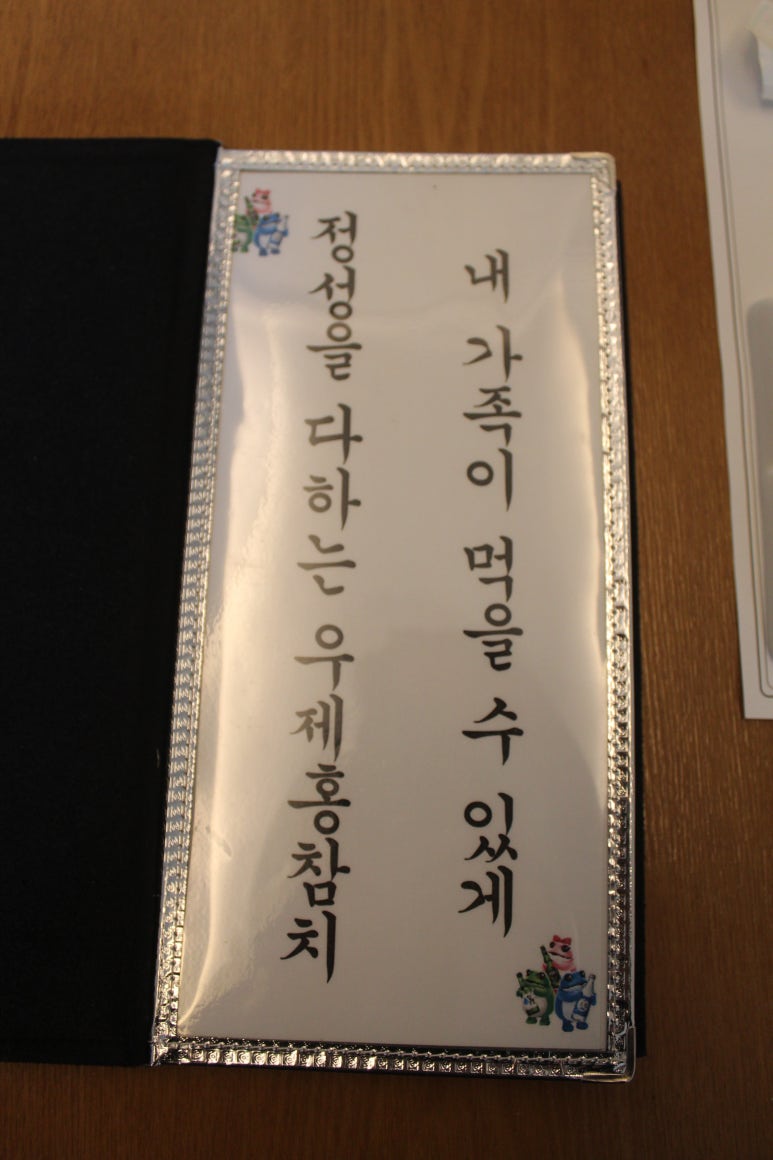 내 가족이 먹을 수 있게
정성을 다하는 우제홍참치